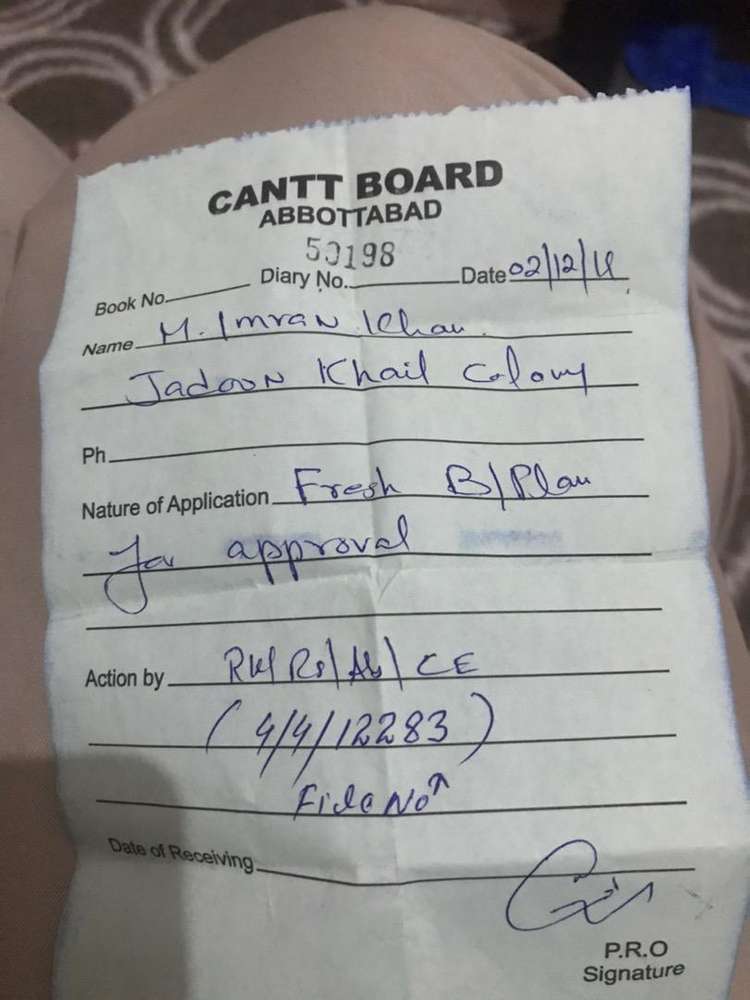 CANTT BOARD
ABBOTTABAD
50198
Book No. Diary No. Date 02/12/
Name M. Imran Khan
Jadoon Khail Colony
Ph
Nature of Application Fresh B/Plan
for approval
Action by CE
(4/4/12283)
File No
Date of Receiving
P.R.O
Signature